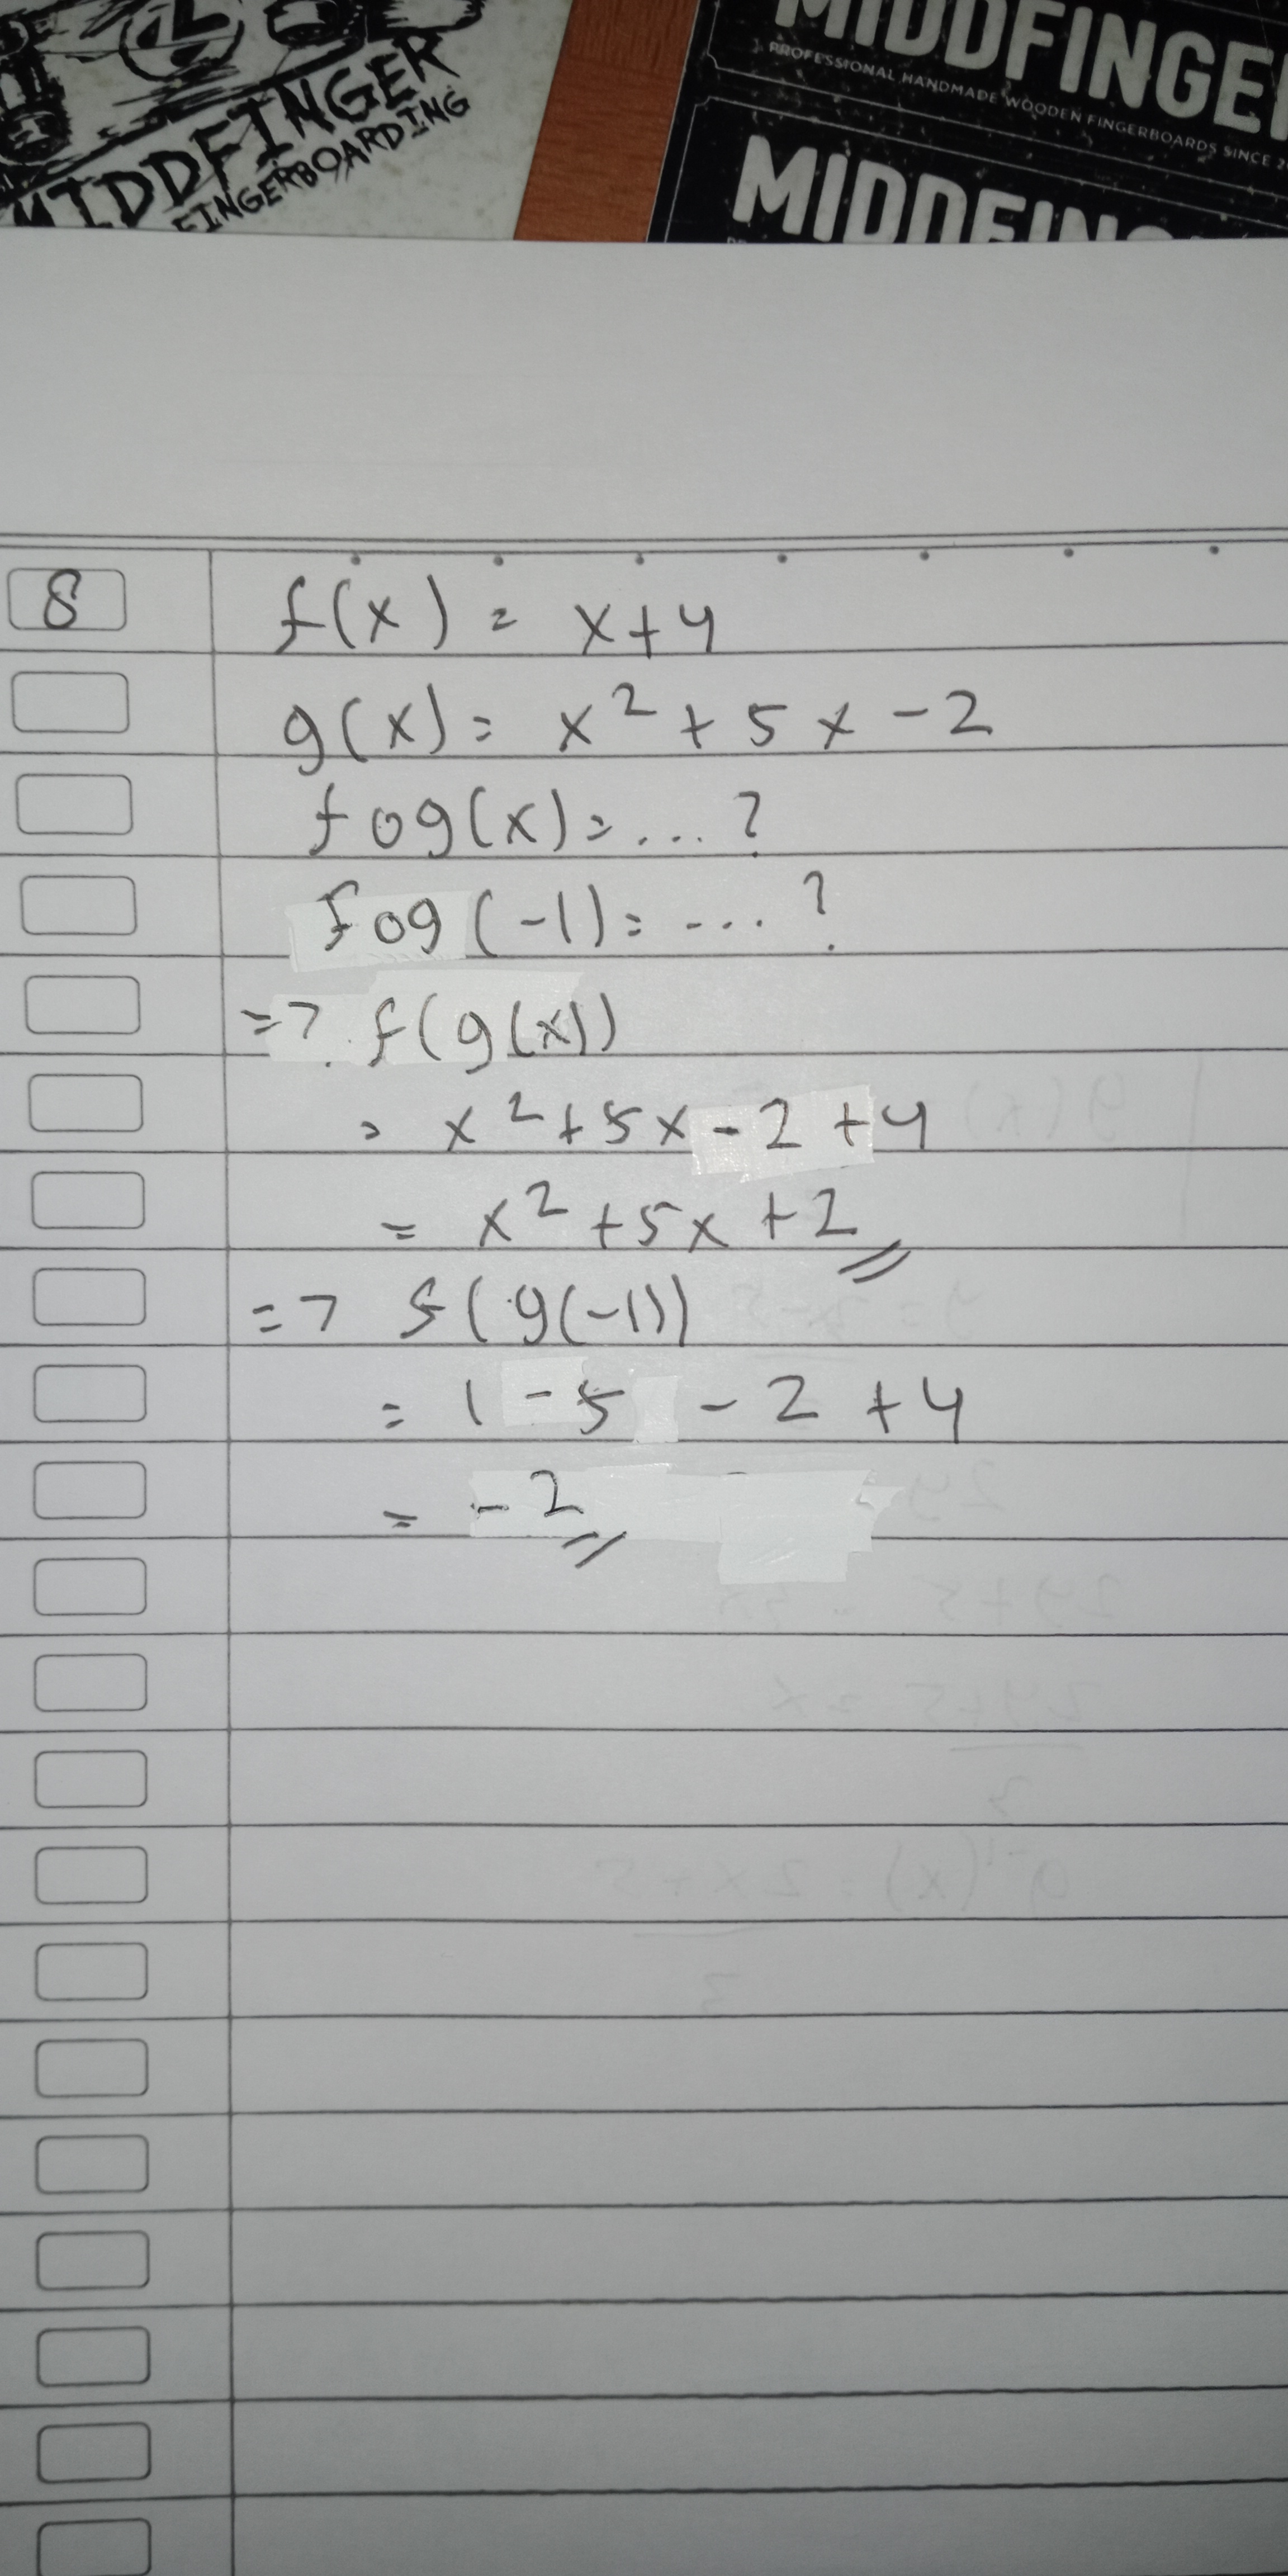 MIDDFINGER
FINGERBOARDING
MIDDFINGER
PROFESSIONAL HANDMADE WOODEN FINGERBOARDS SINCE
8
f(x) = x+4
g(x) = x² + 5x - 2
fog(x) = ... ?
fog(-1) = ... ?
=> f(g(x))
= x² + 5x - 2 + 4
= x² + 5x + 2
=> f(g(-1))
= 1 - 5 - 2 + 4
= -2